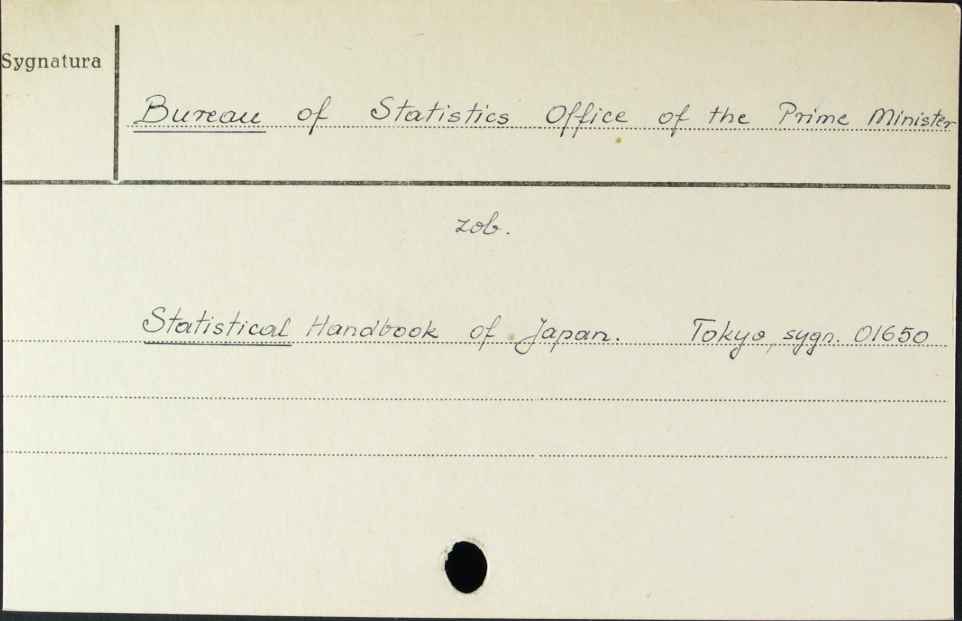 Sygnatura
Bureau of Statistics Office of the Prime Minister
zob.
Statistical Handbook of Japan. Tokyo, sygn. 01650